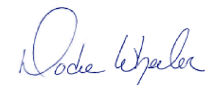 Dodie Wheeler